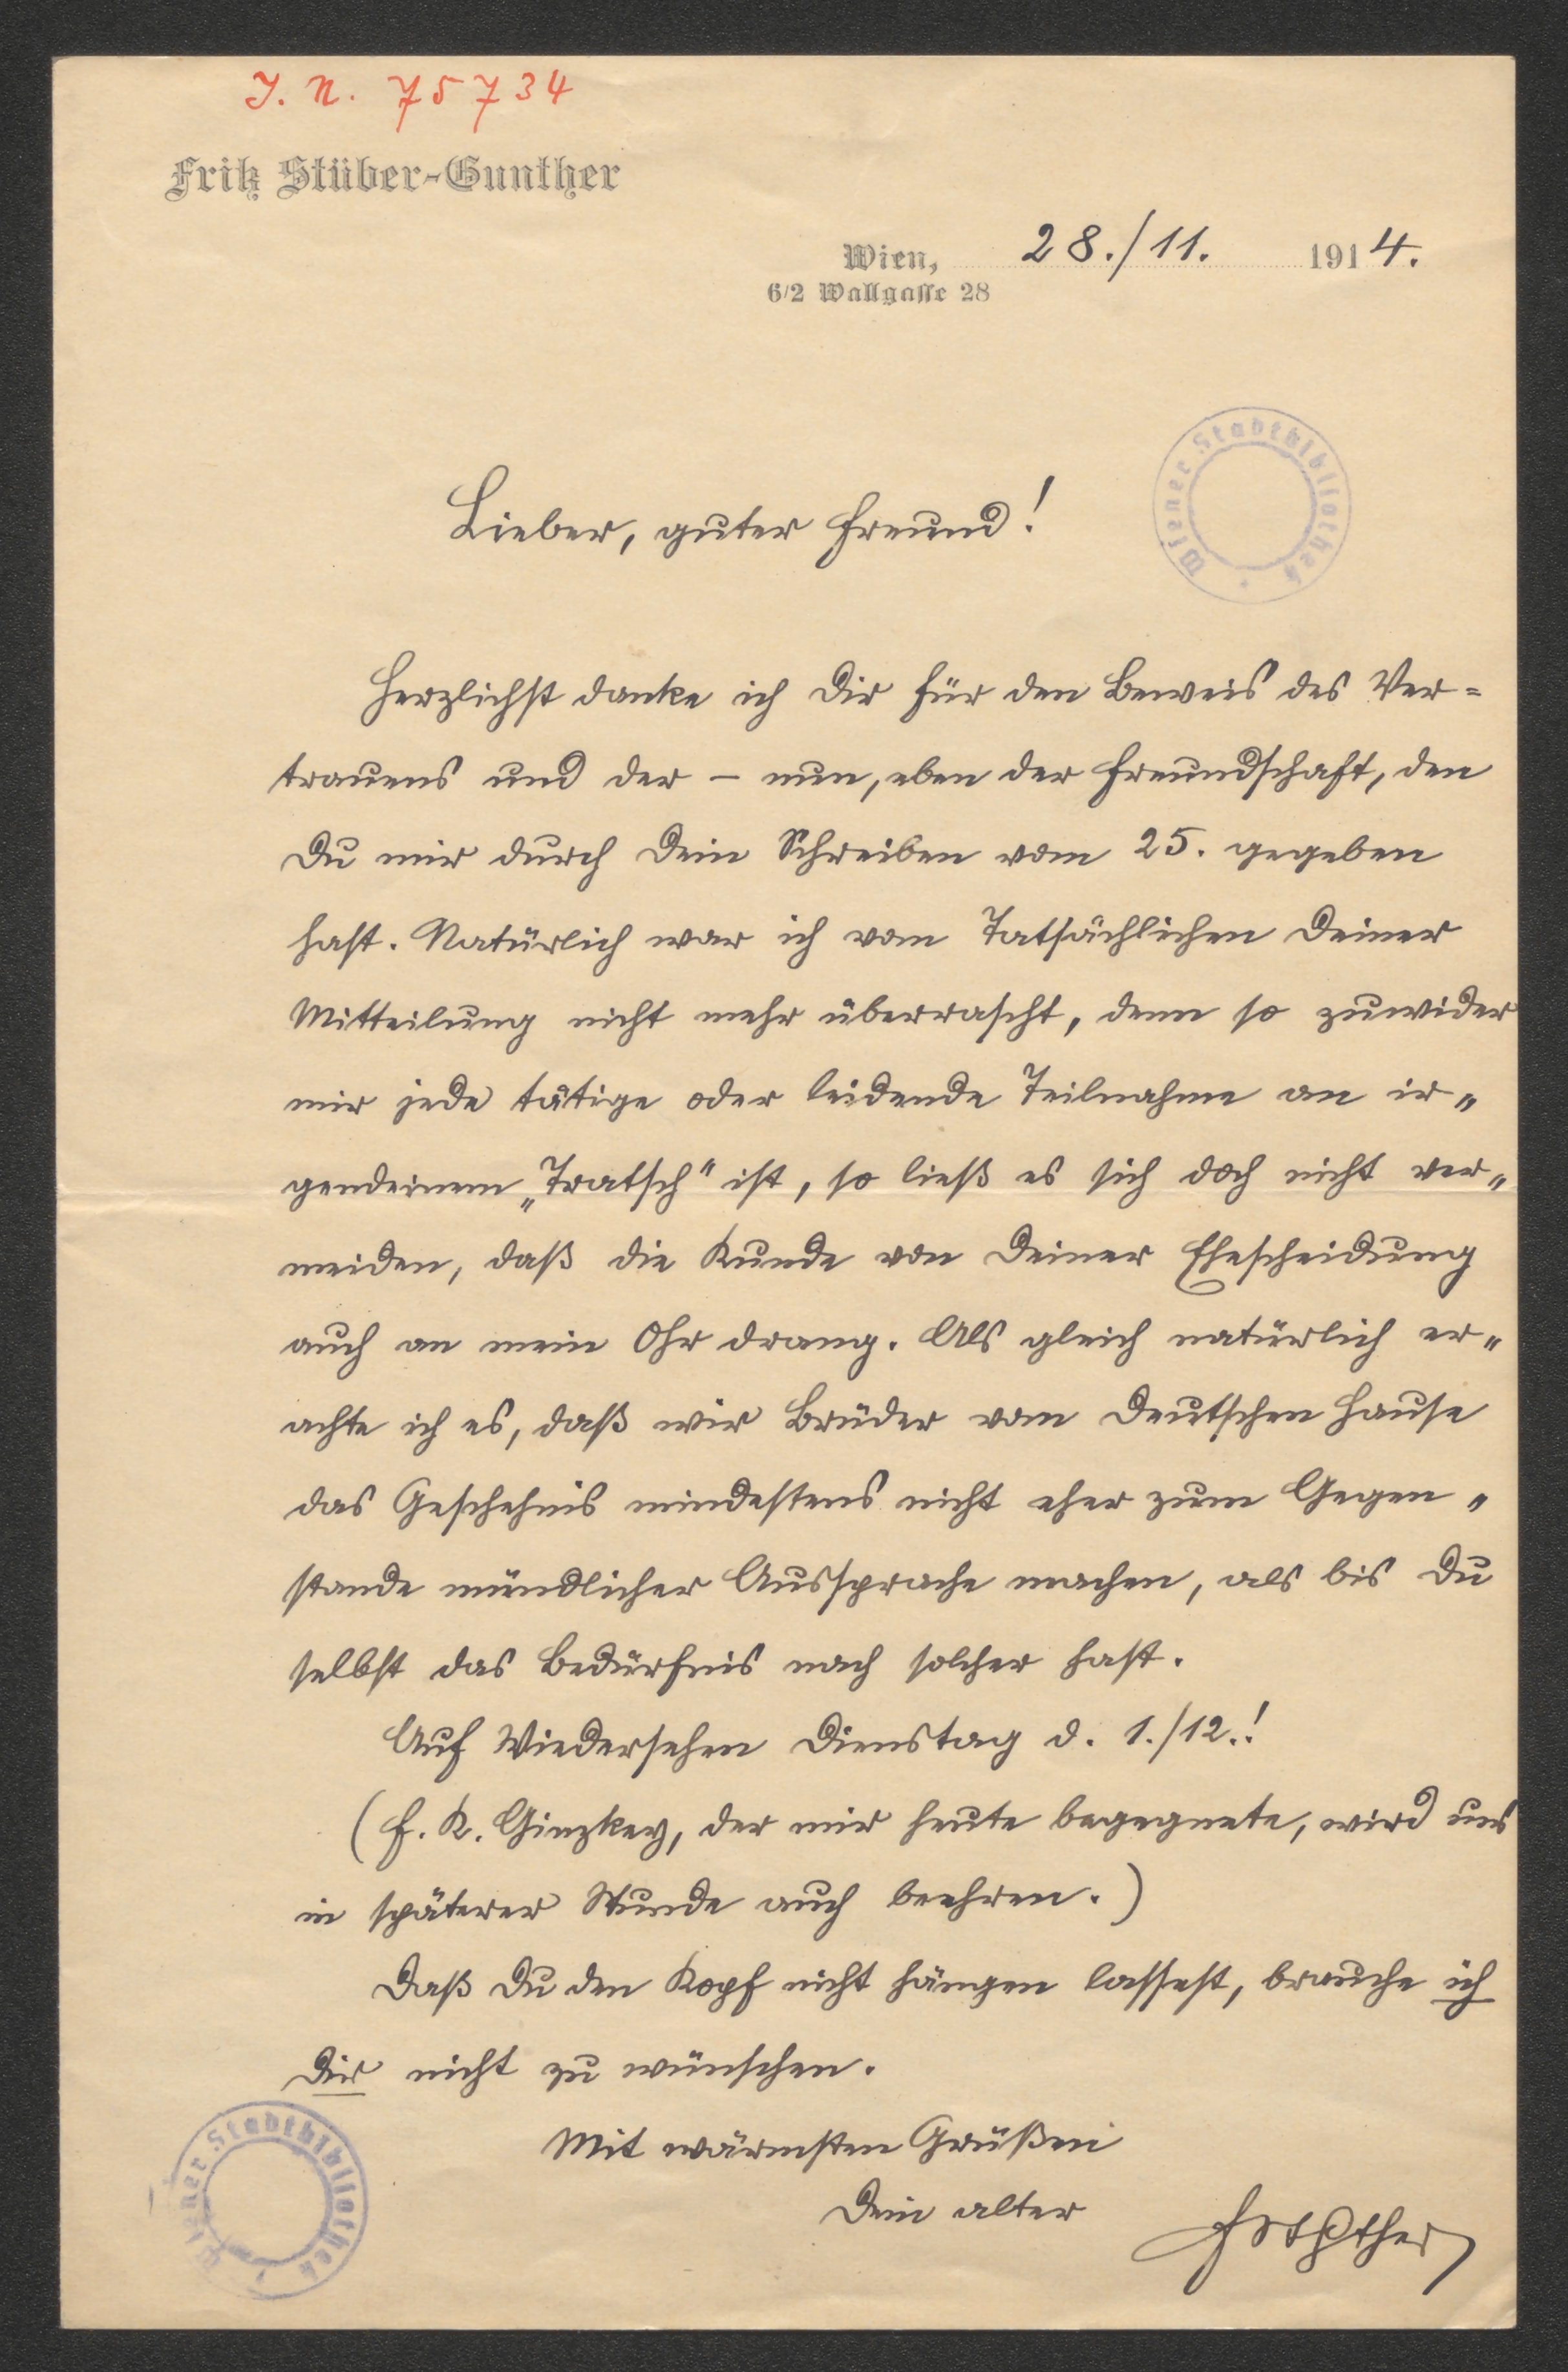 J. N. 75734
Fritz Stüber-Gunther
Wien, 28./11. 1914.
6/2 Wallgasse 28
Wiener Stadtbibliothek
Lieber, guter Freund!
Herzlichst danke ich Dir für den Beweis des Ver=
trauens und der – nun, eben der Freundschaft, den
Du mir durch Dein Schreiben vom 25. gegeben
hast. Natürlich war ich vom Tatsächlichen Deiner
Mitteilung nicht mehr überrascht, denn so zuwider
mir jede tätige oder leidende Teilnahme an ir=
gendeinem „Tratsch“ ist, so ließ es sich doch nicht ver=
meiden, daß die Kunde von Deiner Ehescheidung
auch an mein Ohr drang. Als gleich natürlich er=
achte ich es, daß wir Brüder vom Deutschen Hause
das Geschehnis mindestens nicht eher zum Gegen=
stande mündlicher Aussprache machen, als bis Du
selbst das Bedürfnis nach solcher hast.
Auf Wiedersehen Dienstag d. 1./12.!
(F. K. Ginzkey, der mir heute begegnete, wird uns
in späterer Stunde auch beehren.)
Daß Du den Kopf nicht hängen lassest, brauche ich
Dir nicht zu wünschen.
Mit wärmsten Grüßen
Dein alter
Wiener Stadtbibliothek